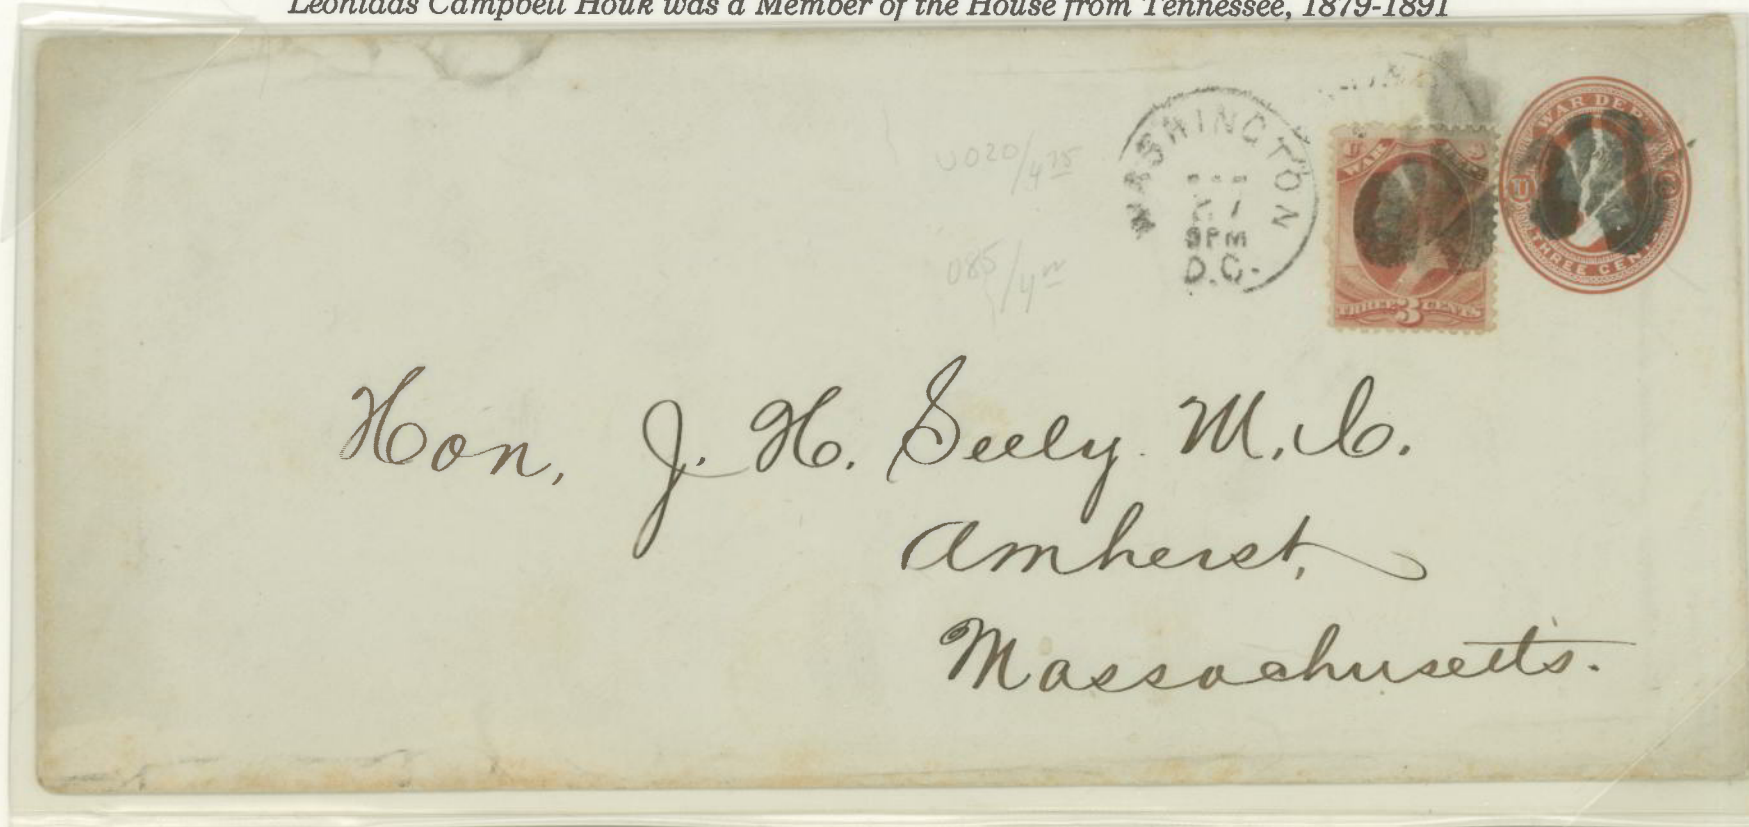 Leonidas Campbell Houk was a Member of the House from Tennessee, 1879-1891
WASHINGTON
9PM
D.C.
WAR
THREE 3 CENTS
WAR DEP
U
THREE CEN
UO20/4 75
O85/4
Hon. J. H. Seely M.C.
Amherst,
Massachusetts.